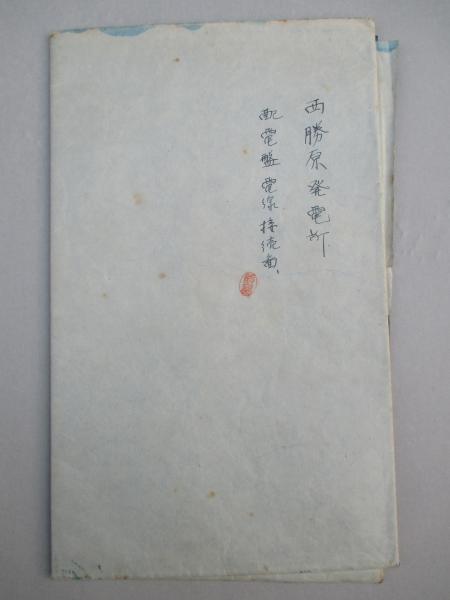 西勝原発電所
配電盤電線接続図